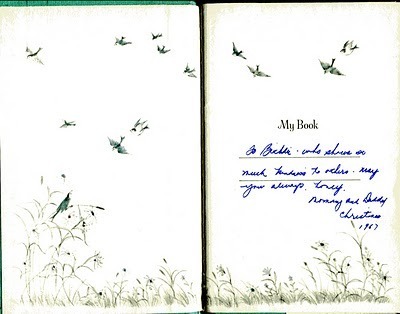 My Book
To Bobbi - who shows so
much kindness to others. may
you always, Honey.
Mommy and Daddy
Christmas
1957